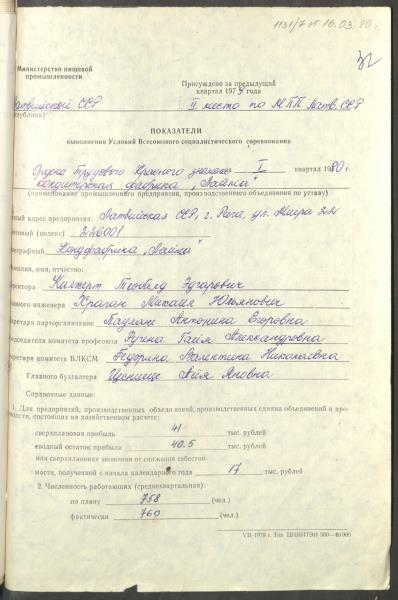 1131/7 от 10.03.80 г.
Министерство пищевой
промышленности
Присуждено за предыдущий
квартал 1979 года
Латвийской ССР
II место по МПП Латв. ССР
республика)
ПОКАЗАТЕЛИ
выполнения Условий Всесоюзного социалистического соревнования
Ордена Трудового Красного знамени I квартал 1980 г.
кондитерская фабрика „Лайма"
(наименование промышленного предприятия, производственного объединения по уставу)
адрес предприятия: Латвийская ССР, г. Рига, ул. Мира 22
(индекс) 226001
Кондфабрика „Лайма"
имя, отчество:
директора Калхерт Теобалд Эдгарович
инженера Храпан Михаил Юльянович
секретаря парторганизации Антонина Егоровна
председателя комитета профсоюза Ругина Гайя Александровна
секретаря комитета ВЛКСМ Федорина Валентина Николаевна
Главного бухгалтера Цениеце Айя Яновна
Справочные данные:
1. Для предприятий, производственных объединений, производственных единиц объединений и
состоящих на хозяйственном расчете:
сверхплановая прибыль 41 тыс. рублей
сводный остаток прибыли 40.5 тыс. рублей
или сверхплановая экономия от снижения себестои-
мости, полученной с начала календарного года 17 тыс. рублей
2. Численность работающих (среднеквартальная):
по плану 758 (чел.)
фактически 760 (чел.)
VII-1978 г. Тип. ЦНИИТЭИ